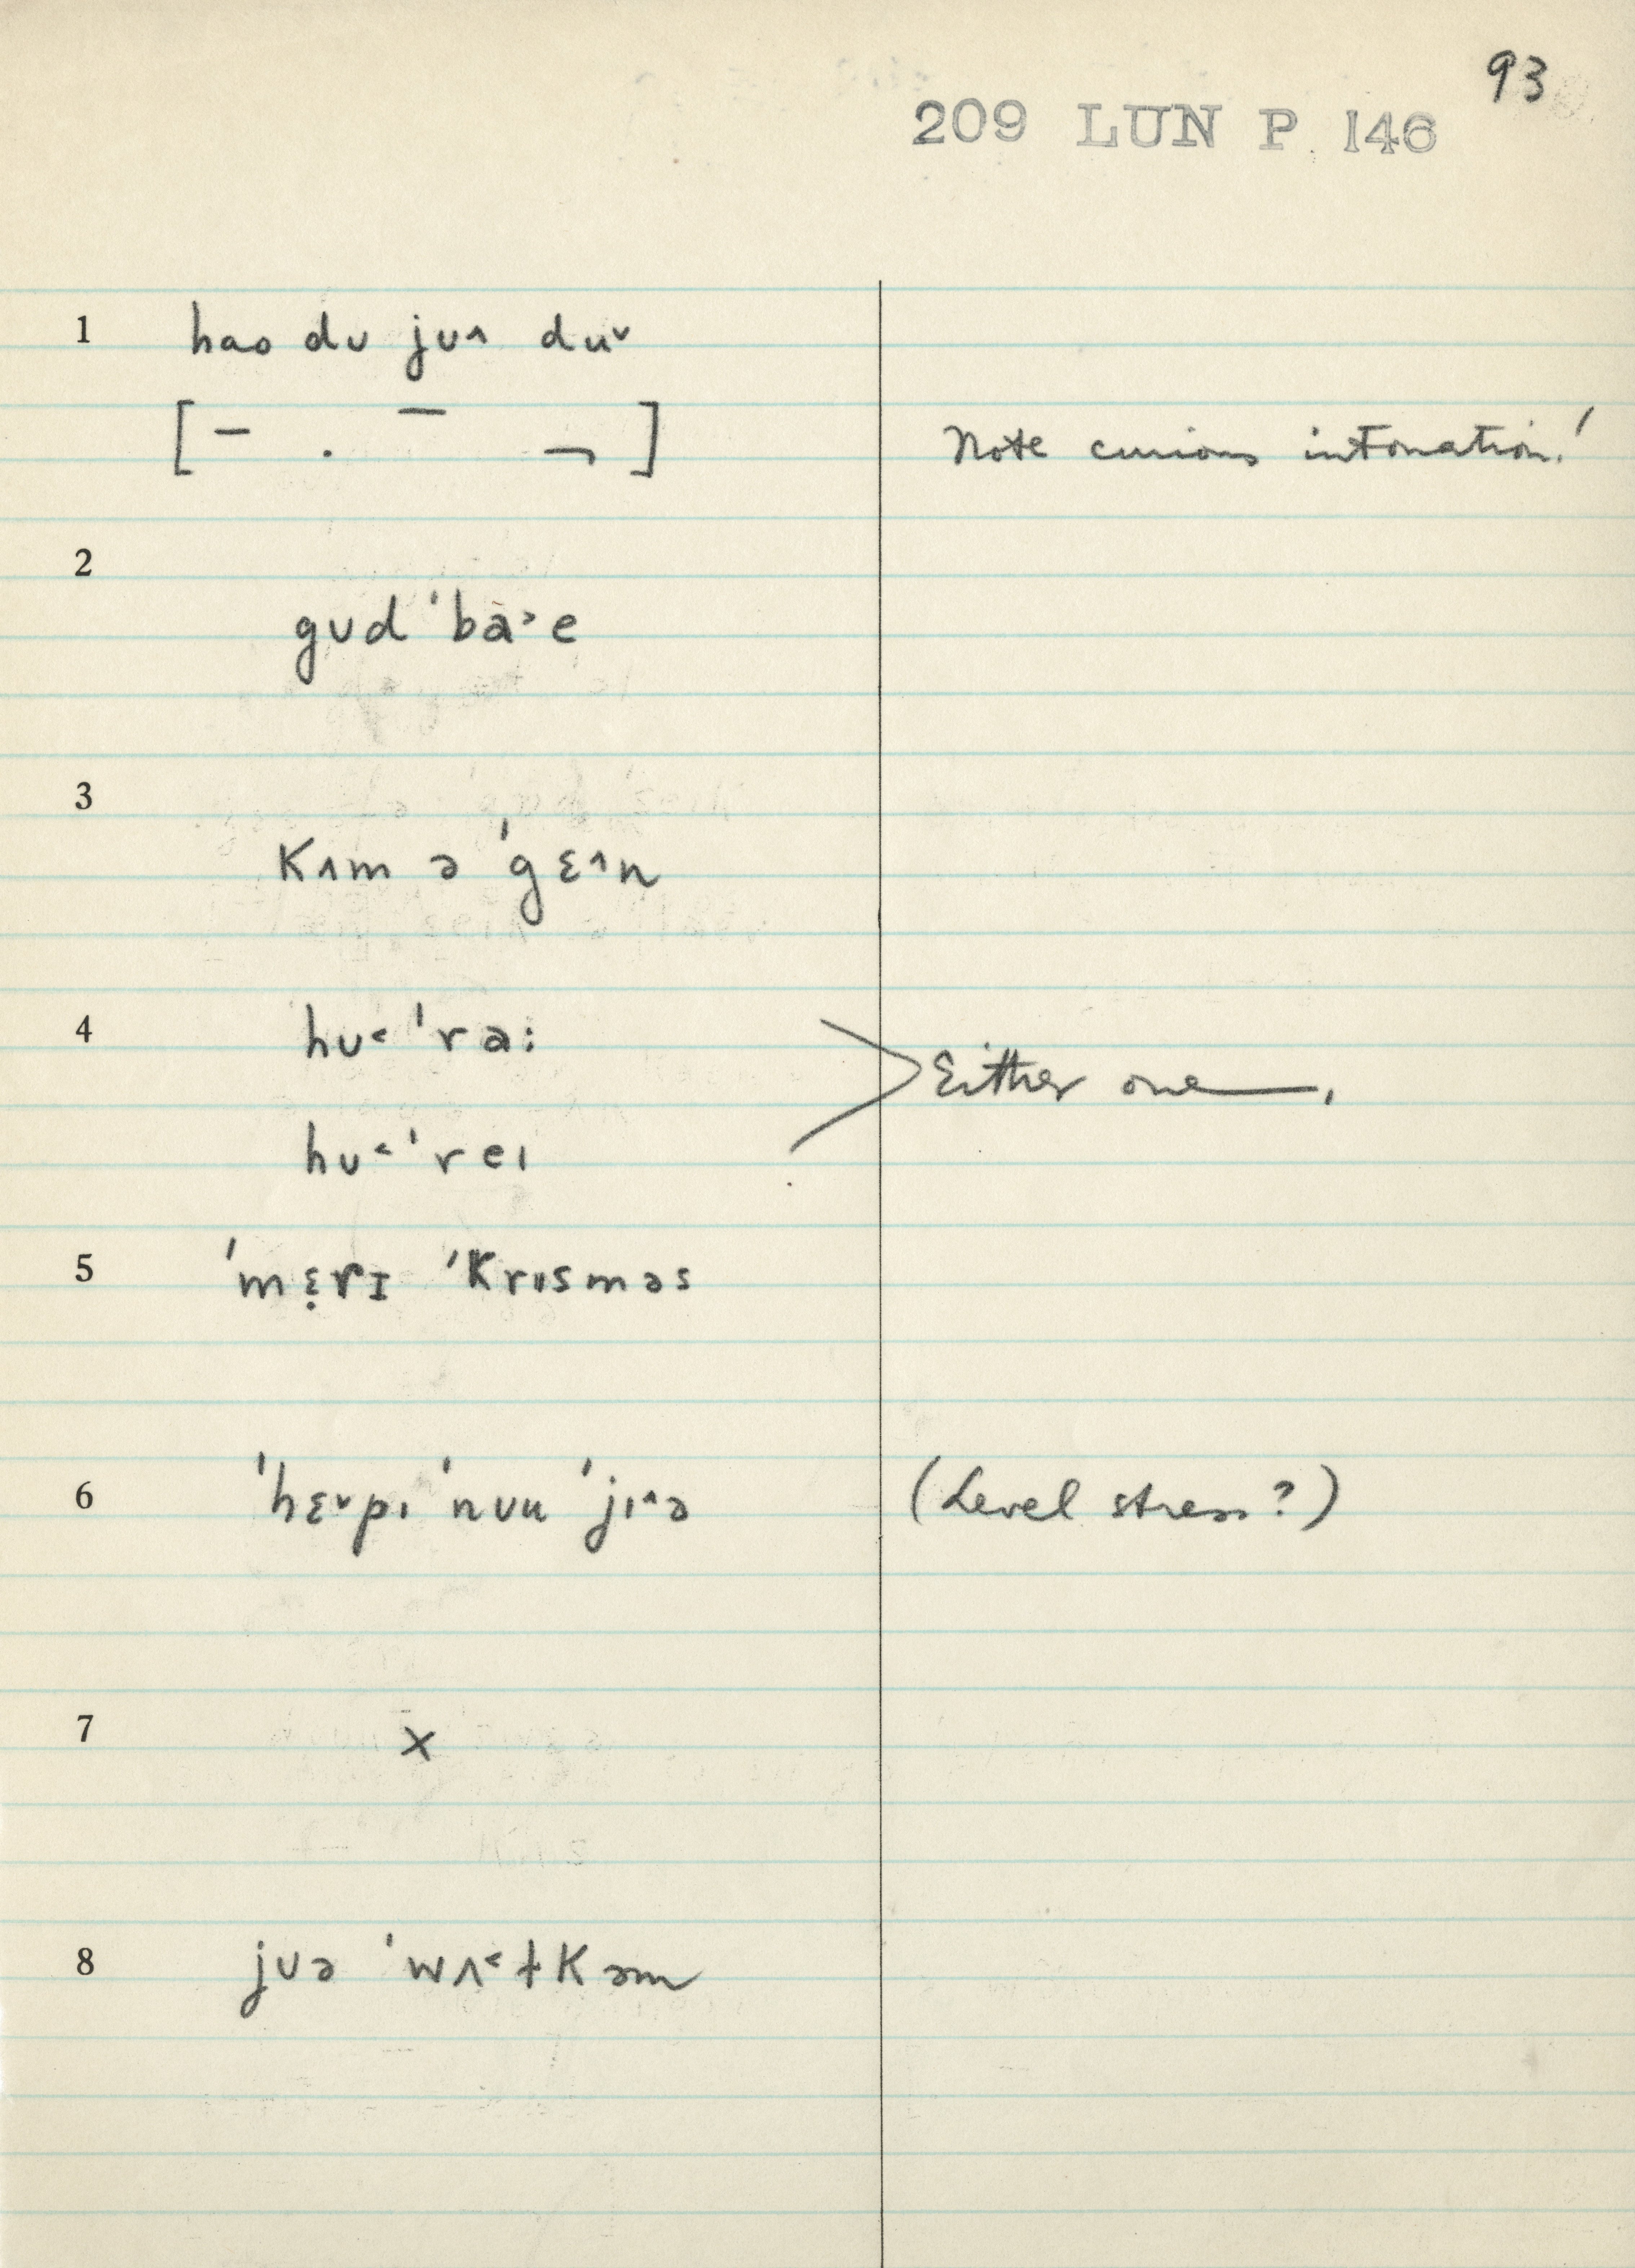 93
209 LUN P. 146
1 hao dʊ jʊ˄ du˅
[– . – ¬] Note curious intonation!
2
gʊd ˈba˃e
3
kʌm ə ˈgɛ˄n
4 hʊ˂ ˈra:
Either one.
hʊ˂ ˈreɪ
5 ˈmɛ̣rɪ ˈkrɪsməs
6 ˈhɛ˅pɪ ˈnʊu ˈjɪ˄ə (Level stress?)
7 x
8 jʊə ˈwʌ˂ɫkəm